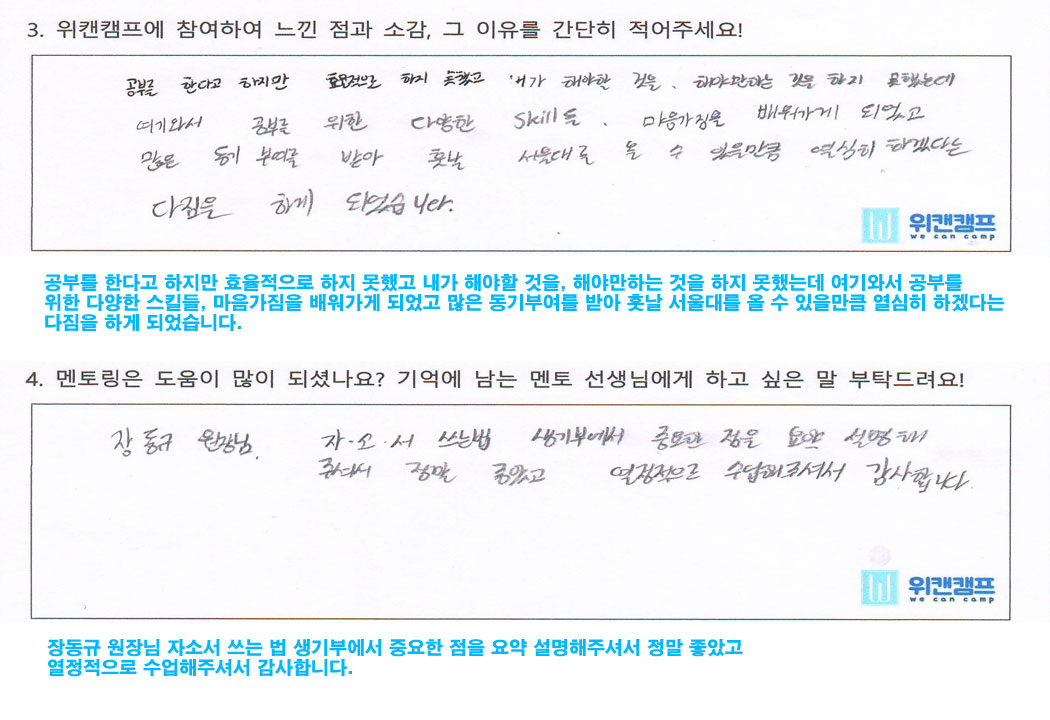 3. 위캔캠프에 참여하여 느낀 점과 소감, 그 이유를 간단히 적어주세요!
공부를 한다고 하지만 효율적으로 하지 못했고 내가 해야할 것을, 해야만하는 것을 하지 못했는데
여기와서 공부를 위한 다양한 skill들, 마음가짐을 배워가게 되었고
많은 동기 부여를 받아 훗날 서울대를 올 수 있을만큼 열심히 하겠다는
다짐을 하게 되었습니다.
위캔캠프
we can camp
공부를 한다고 하지만 효율적으로 하지 못했고 내가 해야할 것을, 해야만하는 것을 하지 못했는데 여기와서 공부를
위한 다양한 스킬들, 마음가짐을 배워가게 되었고 많은 동기부여를 받아 훗날 서울대를 올 수 있을만큼 열심히 하겠다는
다짐을 하게 되었습니다.
4. 멘토링은 도움이 많이 되셨나요? 기억에 남는 멘토 선생님에게 하고 싶은 말 부탁드려요!
장동규 원장님. 자·소·서 쓰는법 생기부에서 중요한 점을 요약 설명해
주셔서 정말 좋았고 열정적으로 수업해주셔서 감사합니다.
위캔캠프
we can camp
장동규 원장님 자소서 쓰는 법 생기부에서 중요한 점을 요약 설명해주셔서 정말 좋았고
열정적으로 수업해주셔서 감사합니다.